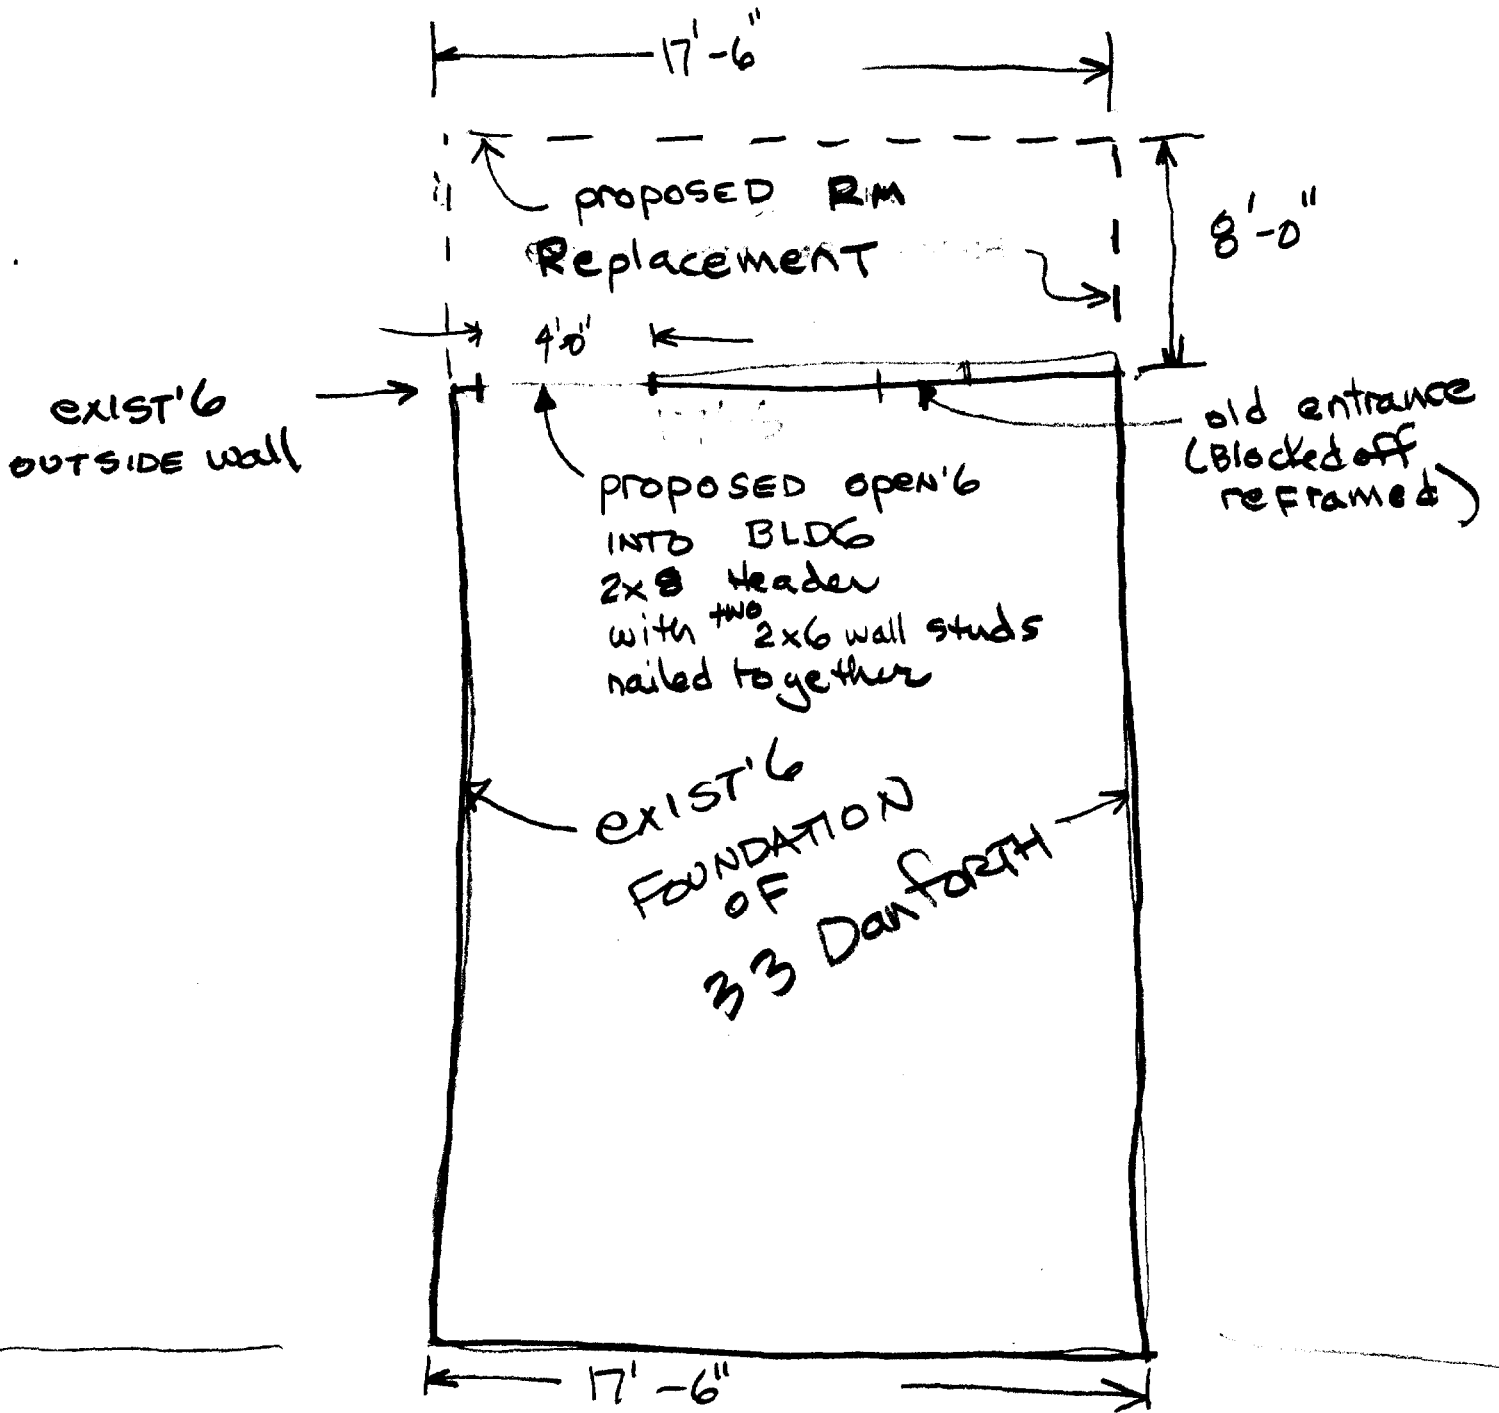 17'-6"
proposed Rm
Replacement
8'-0"
4'0"
exist'g
outside wall
old entrance
(Blocked off
reframed)
proposed open'g
into BLDG
2x8 Header
with two 2x6 wall studs
nailed together
exist'g
Foundation
of
33 Danforth
17'-6"